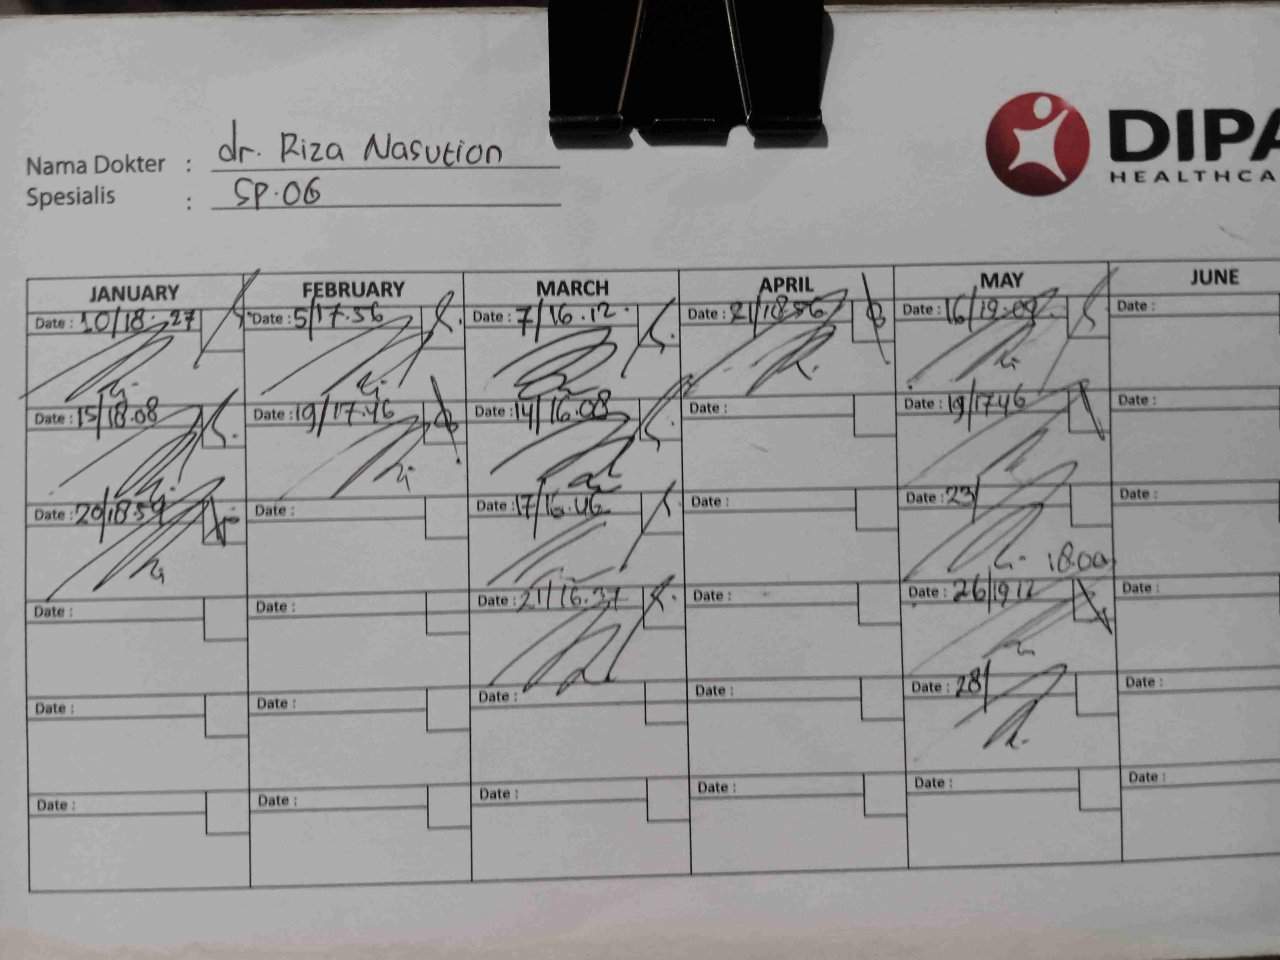 dr. Riza Nasution
Nama Dokter :
SP.OG
Spesialis :
DIPA
HEALTHCA
JANUARY FEBRUARY MARCH APRIL MAY JUNE
Date : 10/18.27 Date : 5/17.56 Date : 7/16.12 Date : 21/18.56 Date : 16/19.09 Date :
Date : 15/18.08 Date : 19/17.46 Date : 14/16.08 Date : Date : 19/1746 Date :
Date : 20/1859 Date : Date : 17/16.46 Date : Date : 23/ Date :
18.00
Date : Date : Date : 21/16.37 Date : Date : 26/1912 Date :
Date : Date : Date : Date : Date : 28/ Date :
Date : Date : Date : Date : Date : Date :